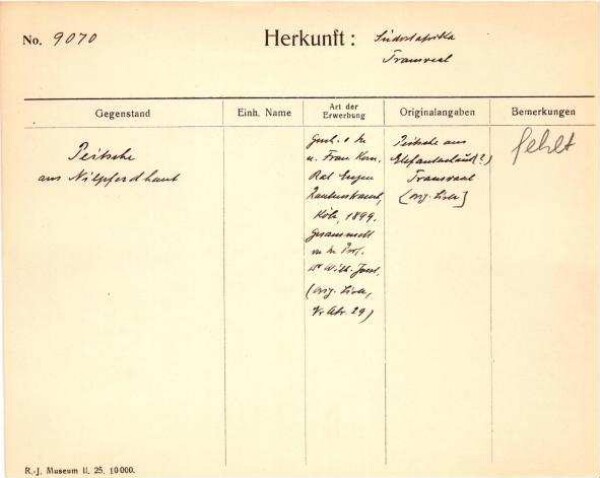 No. 9070
Herkunft: Südostafrika
Transvaal
Gegenstand
Einh. Name
Art der Erwerbung
Originalangaben
Bemerkungen
Peitsche
aus Nilpferdhaut
Gesch. v. Hr.
u. Frau Kom.
Rat Eugen
Rautenstrauch,
Köln, 1899.
Gesammelt
v. Hr. Prof.
Dr Wilh. Joest.
(orig. Liste,
Nr Abt. 29)
Peitsche aus
Elefantenhaut(?)
Transvaal
(orig. Liste]
fehlt
R.-J. Museum II. 25. 10000.